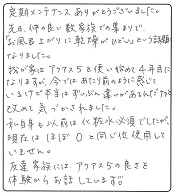 定期メンテナンスありがとうございました。
先日、仲の良い数家族での集まりで、
お風呂上がりに乾燥がひどいという話題に
なりました。
我が家はアクアス5を使い始めて4年目に
なりますが、今ではあたり前のように感じて
いますが本当はずいぶん違いがあるんだナと
改めて気づかされました。
私自身も以前は化粧水必須でしたが、
現在はほぼ0と同じ位使用して
いません。
友達家族には、アクアス5の良さを
体験からお話しています。